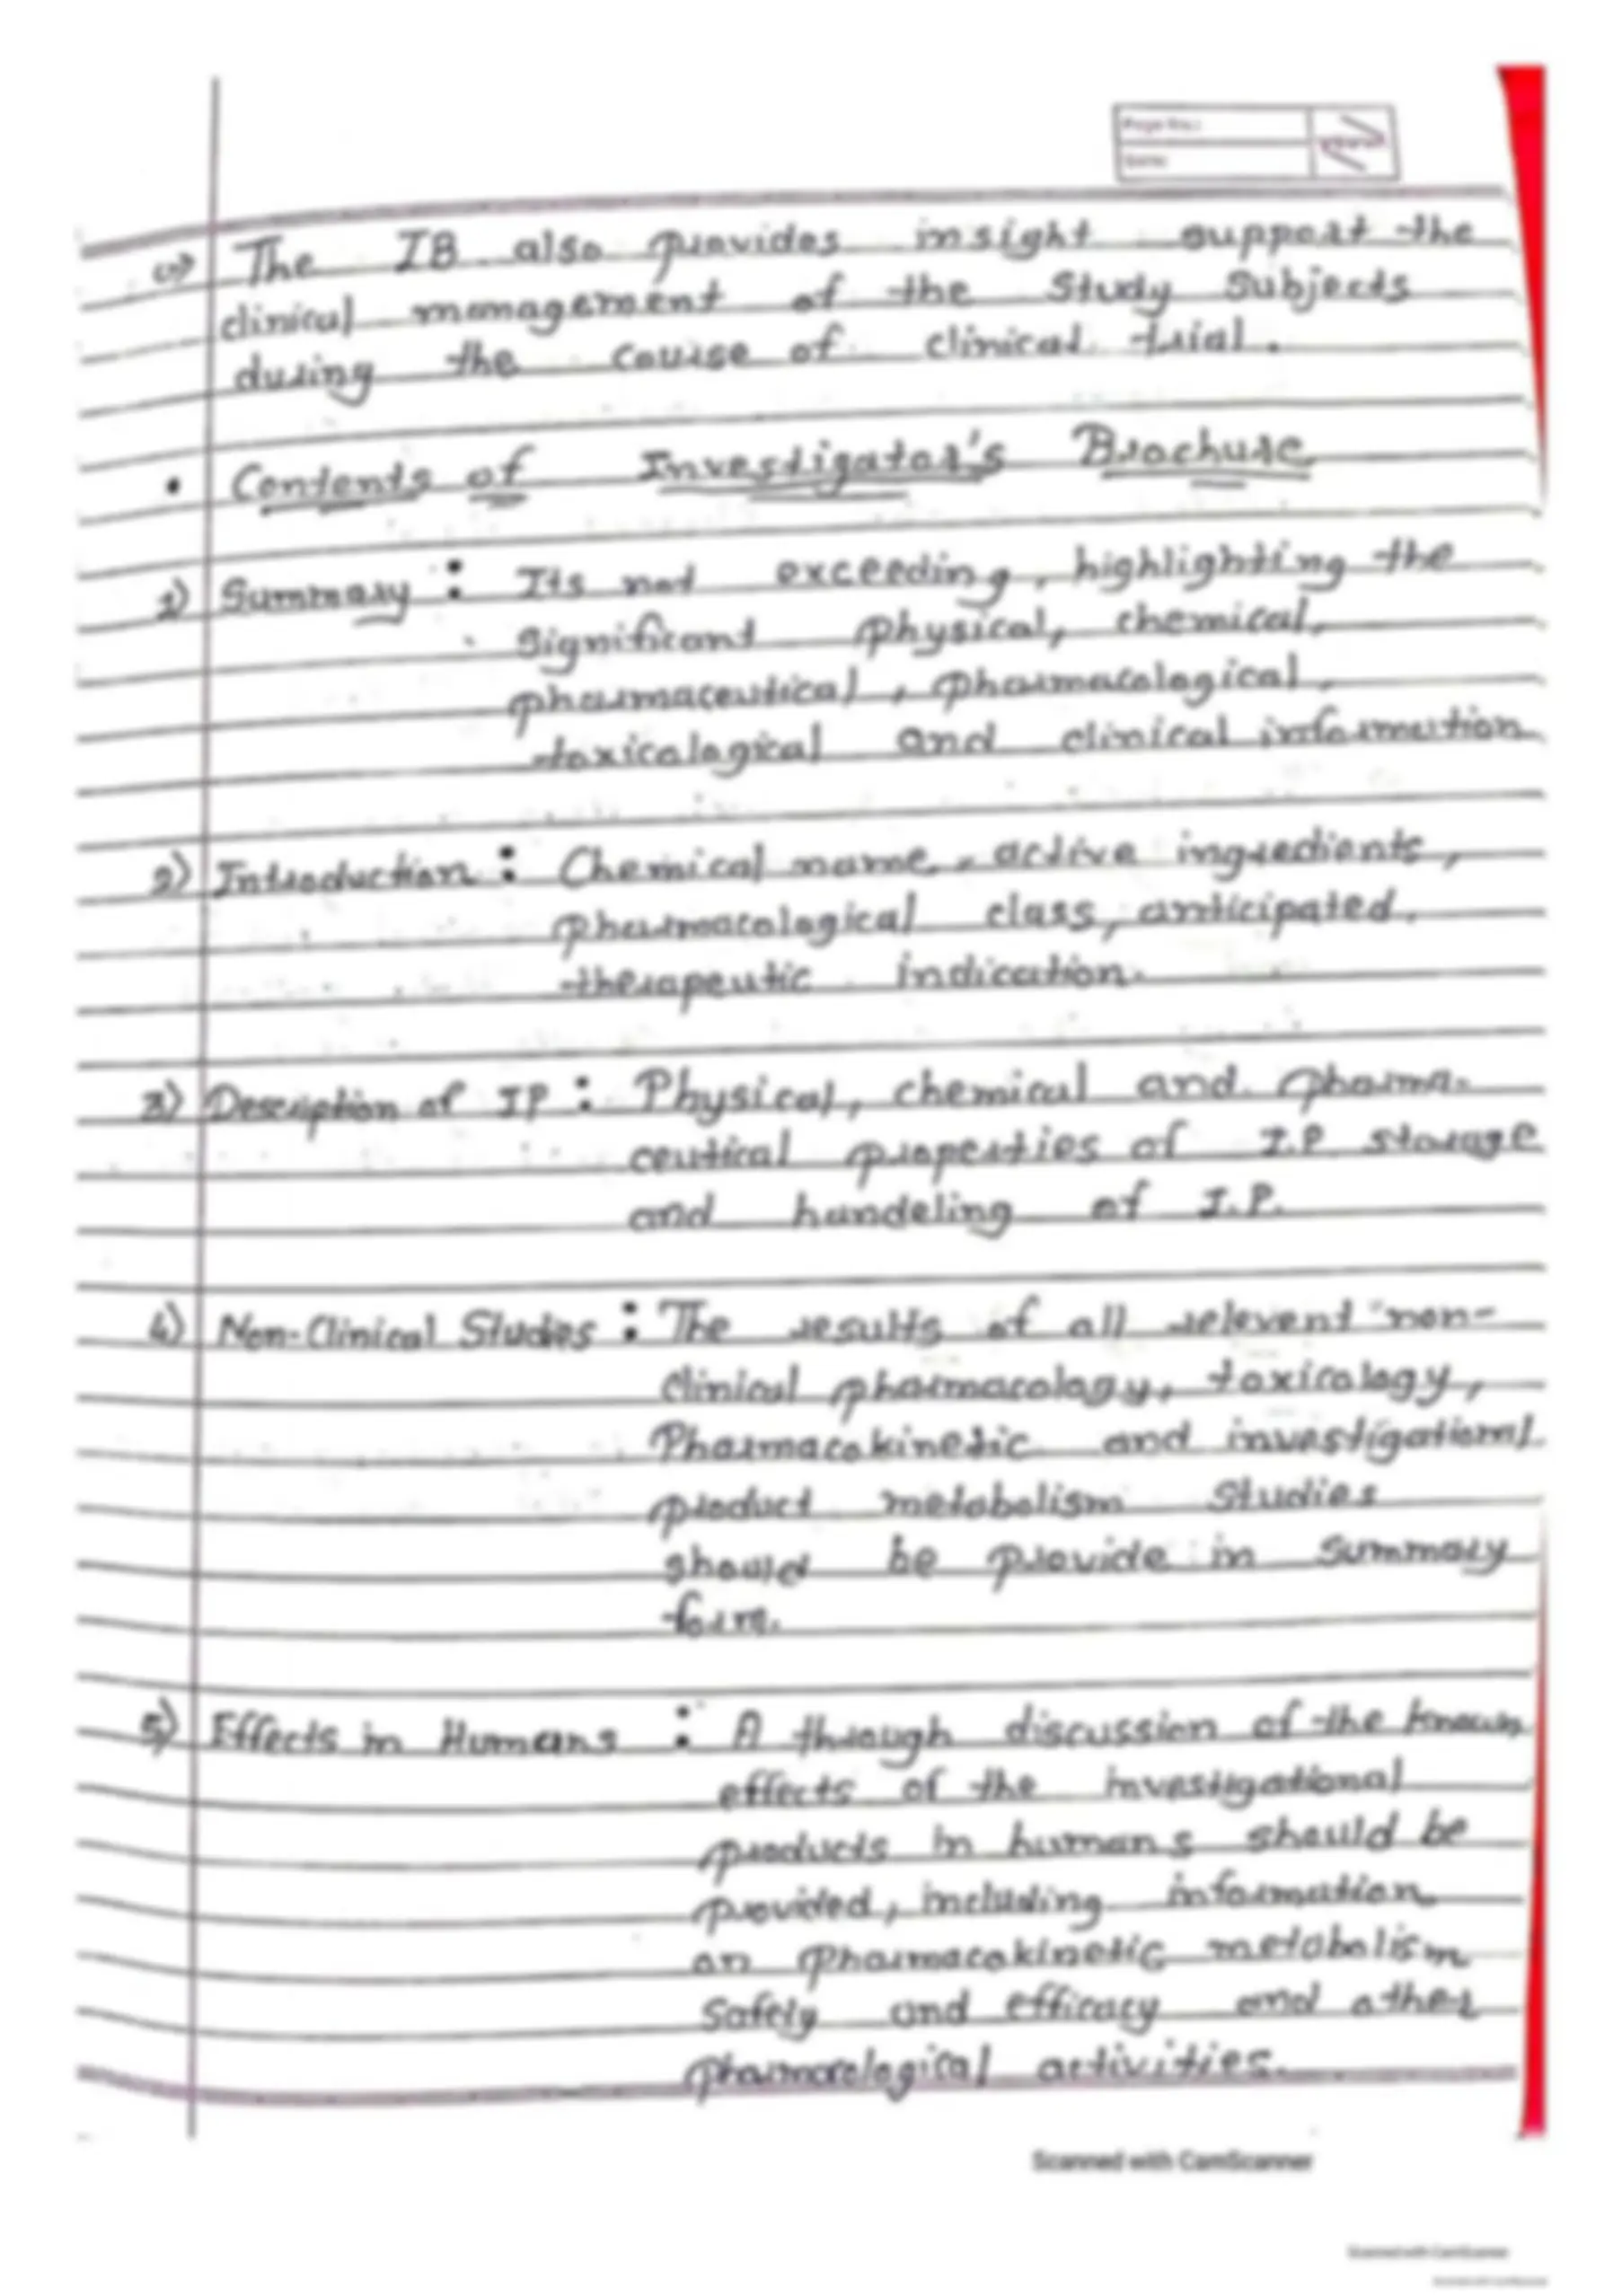 Page No.:
Date:
The IB also provides insight support the
clinical management of the study subjects
during the course of clinical trial.
• Contents of Investigator's Brochure
1) Summary : Its not exceeding, highlighting the
significant physical, chemical,
pharmaceutical, pharmacological,
toxicological and clinical information
2) Introduction : Chemical name, active ingredients,
pharmacological class, anticipated,
therapeutic indication.
3) Description of IP : Physical, chemical and pharma-
ceutical properties of I.P. storage
and handeling of I.P.
4) Non-Clinical Studies : The results of all relevent non-
clinical pharmacology, toxicology,
Pharmacokinetic and investigational
product metabolism studies
should be provide in summary
form.
5) Effects in Humans : A through discussion of the known
effects of the investigational
products in humans should be
provided, including information
on Pharmacokinetic metabolism
safely and efficacy and other
pharmacological activities.
Scanned with CamScanner
Scanned with CamScanner
Scanned with CamScanner